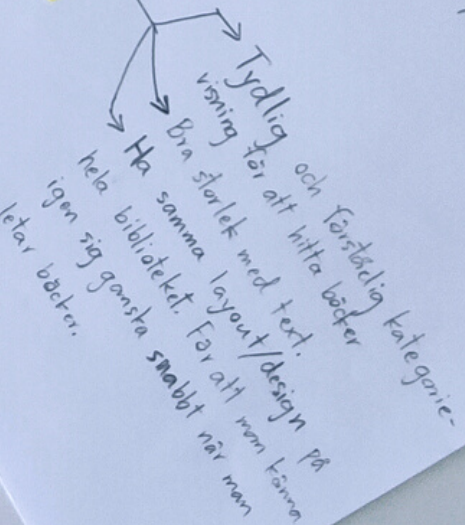 Tydlig och förståelig kategorie-
visning för att hitta böcker
Bra storlek med text.
Ha samma layout/design på
hela biblioteket. För att man känna
igen sig ganska snabbt när man
letar böcker.